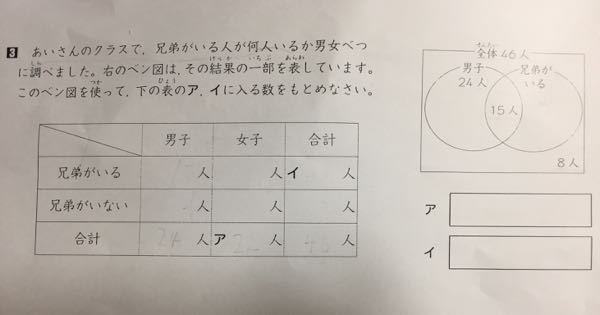 3 あいさんのクラスで，兄弟がいる人が何人いるか男女べつ
に調べました。右のベン図は，その結果の一部を表しています。
このベン図を使って，下の表のア，イに入る数をもとめなさい。
男子 女子 合計
兄弟がいる 人 人 イ 人
兄弟がいない 人 人 人
合計 24 人 ア 人 人
全体46人
男子
24人
兄弟が
いる
15人
8人
ア
イ